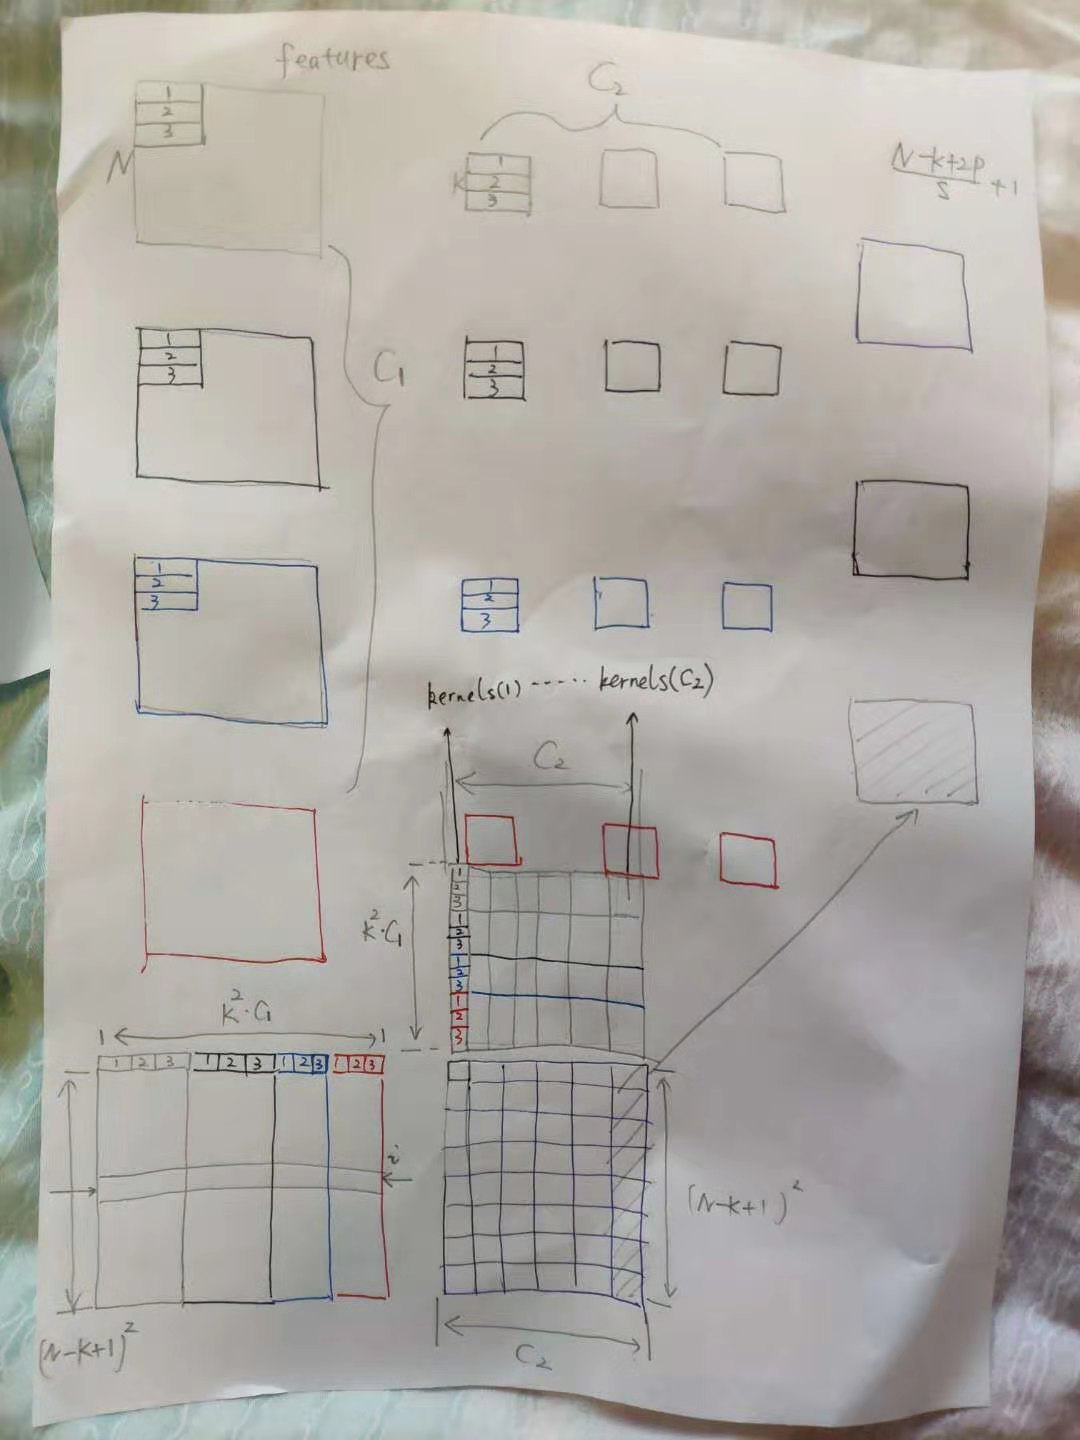 features
1
2
3
N
C₂
K
1
2
3
N-k+2p
S
+1
1
2
3
C₁
1
2
3
1
2
3
1
2
3
kernels(1) ------ kernels(C₂)
C₂
K²·C₁
1
2
3
1
2
3
1
2
3
1
2
3
K²·C₁
1 1
1 2 3 1 2 3 1 2 3 1 2 3
i
(N-K+1)²
(N-K+1)²
C₂